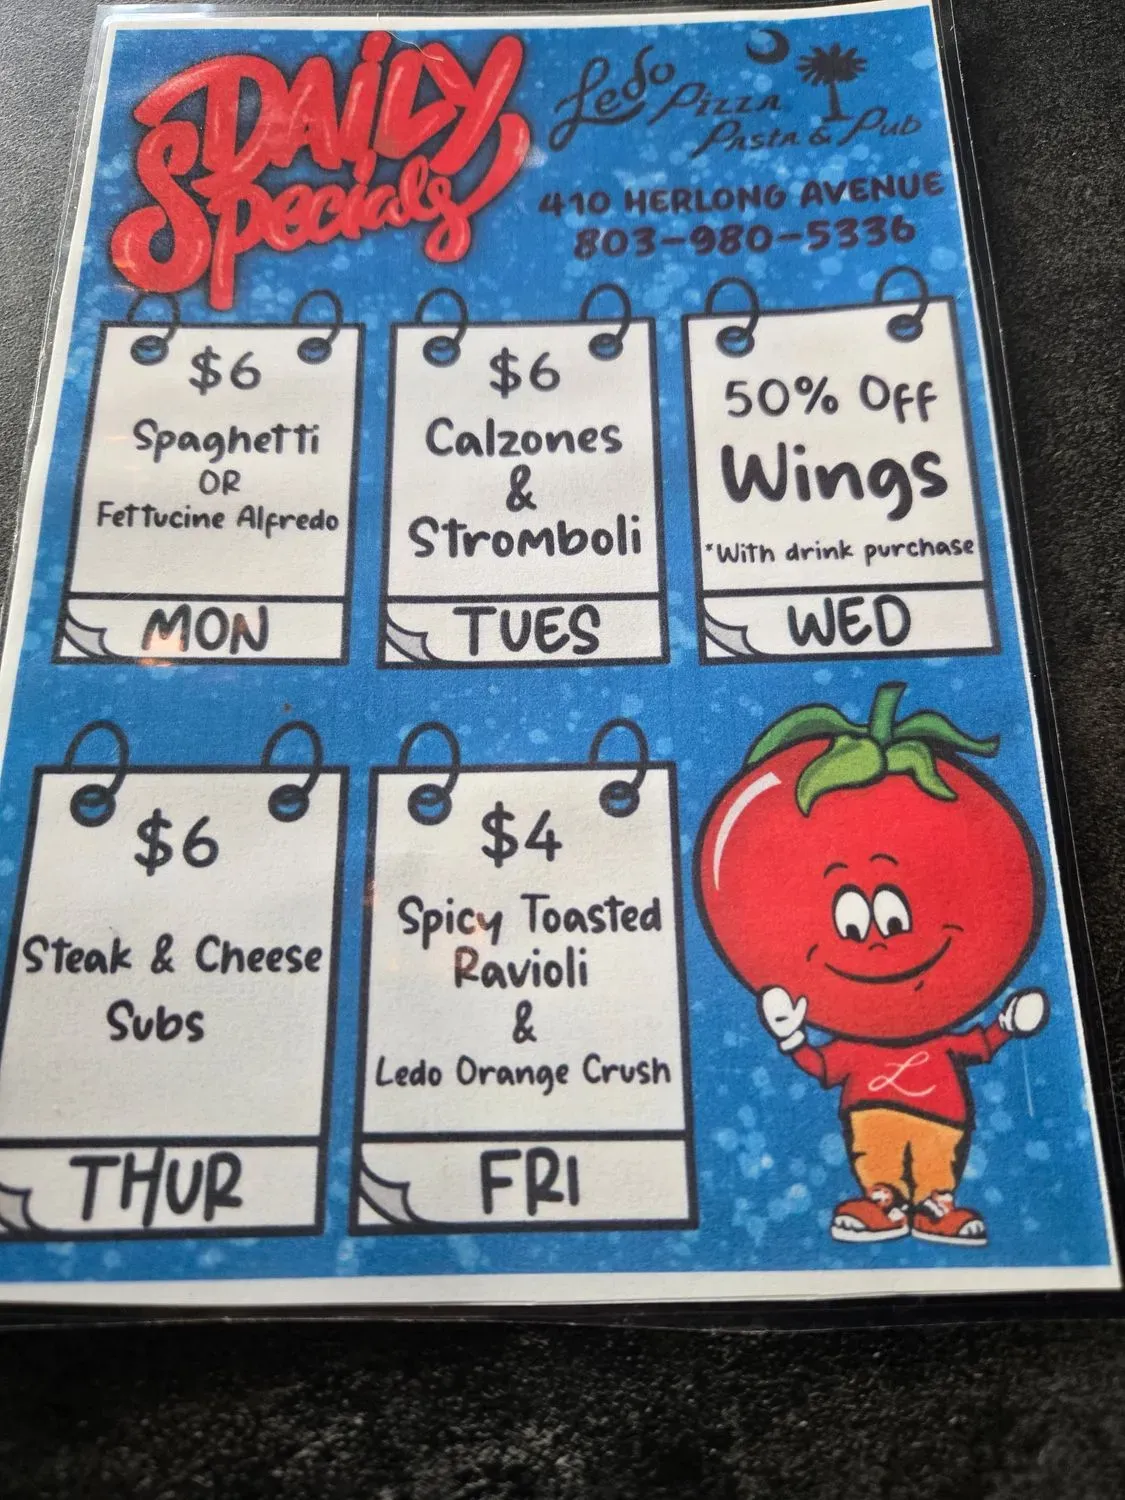 DAILY
Specials
Ledo Pizza
Pasta & Pub
410 HERLONG AVENUE
803-980-5336
$6
Spaghetti
OR
Fettucine Alfredo
MON
$6
Calzones
&
Stromboli
TUES
50% Off
Wings
*With drink purchase
WED
$6
Steak & Cheese
Subs
THUR
$4
Spicy Toasted
Ravioli
&
Ledo Orange Crush
FRI
L